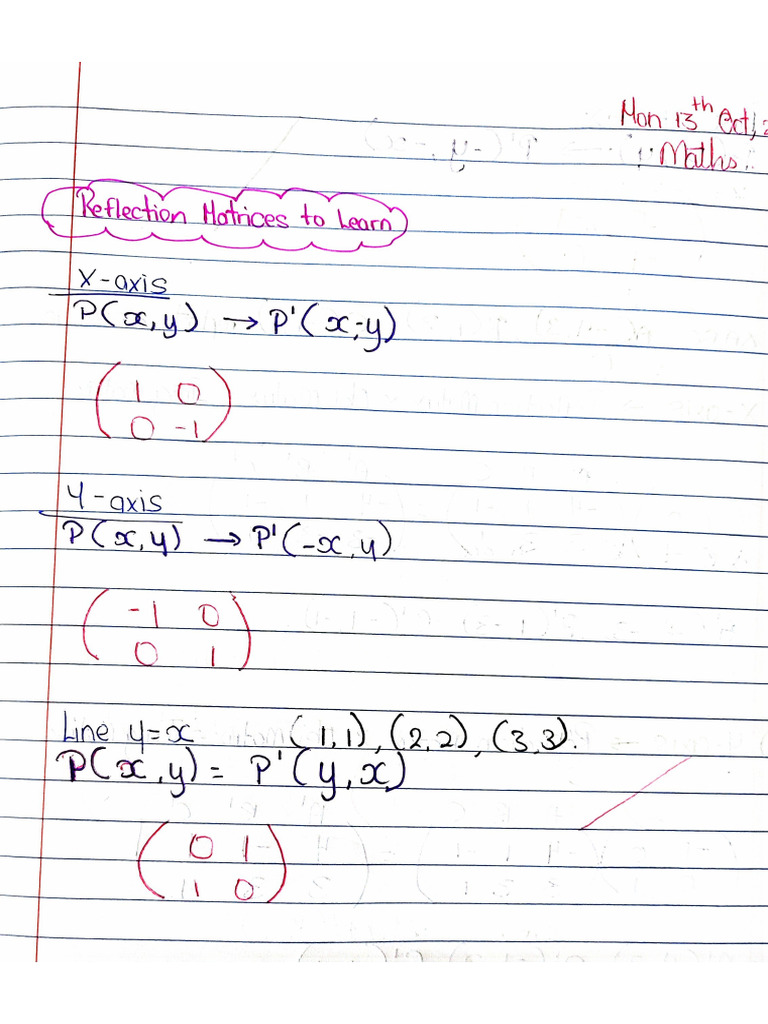 Mon 13th Oct,
Maths.
Reflection Matrices to Learn
X-axis
P(x, y) → P'(x, -y)
( 1 0
0 -1 )
Y-axis
P(x, y) → P'(-x, y)
( -1 0
0 1 )
Line y=x (1,1), (2,2), (3,3).
P(x, y) = P'(y, x)
( 0 1
1 0 )